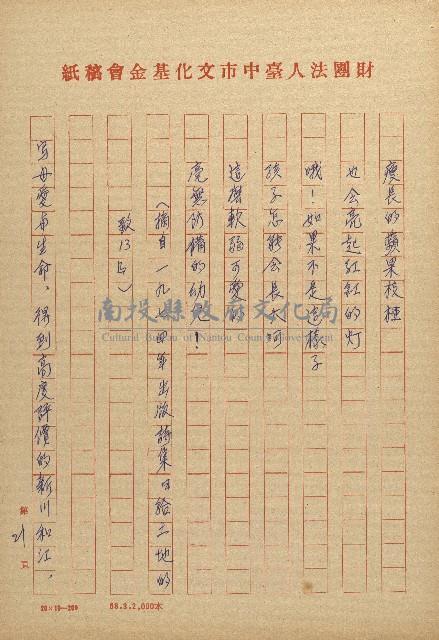 財團法人臺中市文化基金會稿紙
瘦長的蘋果枝椏
也会亮起紅紅的灯
哦！如果不是這樣子
孩子怎能会長大呵
這樣軟弱可愛的
毫無防備的幼兒！
（摘自一九七四年出版詩集「給土地的
歌13」）
写母愛与生命，得到高度評價的新川和江，
第21頁
20×10—200　68.3.2,000本
南投縣政府文化局
Cultural Bureau of Nantou County Government